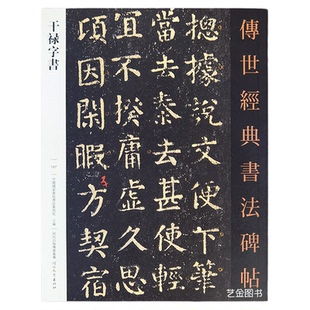 傳世經典書法碑帖
干禄字書
摠據說文便下筆
當去泰去甚使輕
宜不揆庸虛久
頃因閑暇方契宿
艺金图书